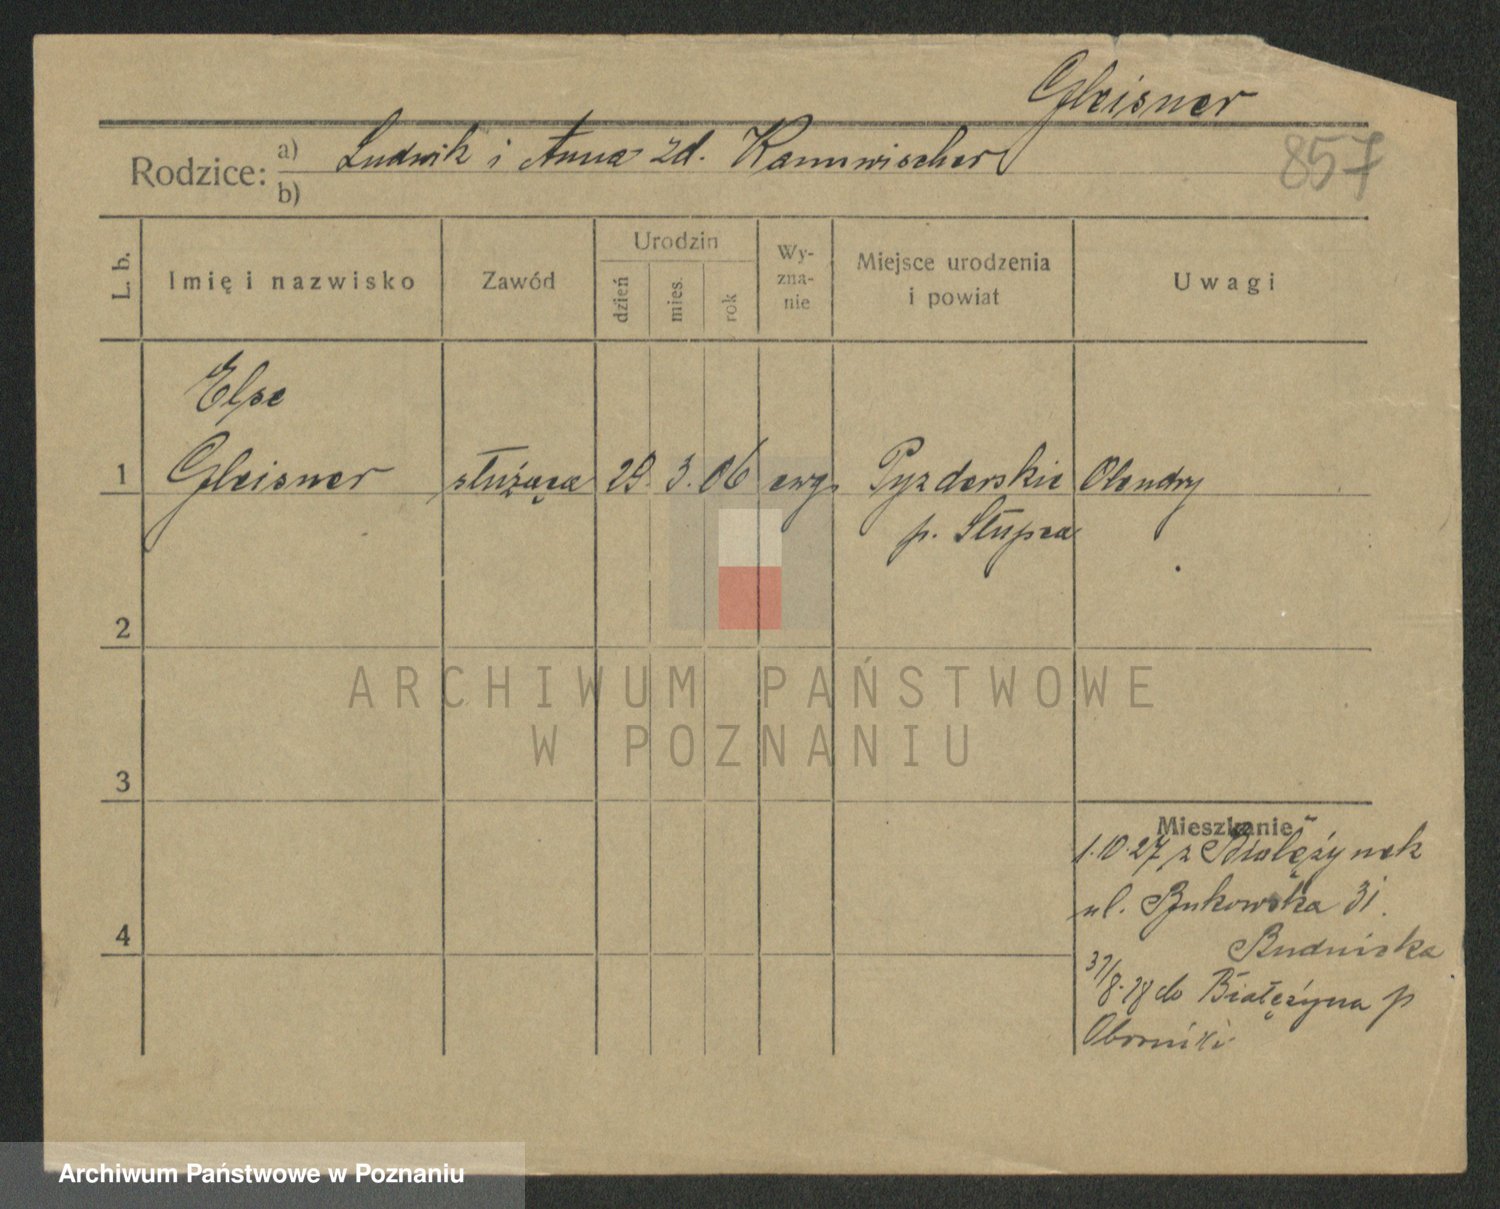 Gleisner
857
Rodzice: a) Ludwik i Anna zd. Kannwischer
b)
L. b.
Imię i nazwisko
Zawód
Urodzin
dzień
mies.
rok
Wy-
zna-
nie
Miejsce urodzenia
i powiat
Uwagi
Else
1 Gleisner służąca 29. 3. 06 ewg. Pyzderskie Olendry
p. Słupca
2
ARCHIWUM PAŃSTWOWE
W POZNANIU
3
Mieszkanie
1.10.27 z Białężynek
ul. Bukowska 31
4
Budniska
do Białężyna p
Oborniki
Archiwum Państwowe w Poznaniu